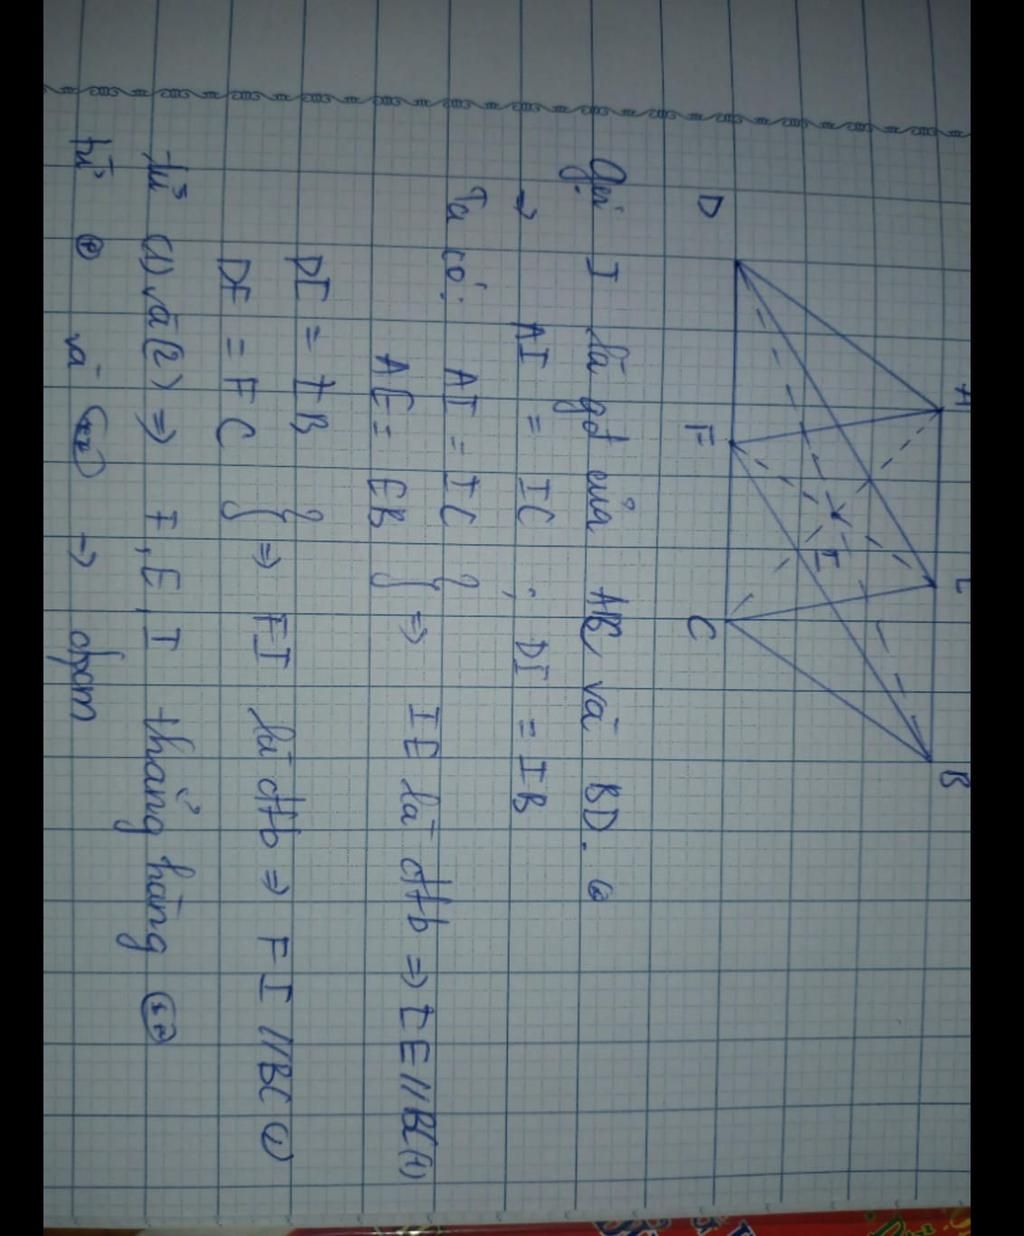 A E B
I
D F C
Gọi I là gđ của AC và BD. (*)
⇒ AI = IC ; DI = IB
Ta có: AI = IC
AE = EB } ⇒ IE là đtb ⇒ IE // BC (1)
DI = IB
DF = FC } ⇒ FI là đtb ⇒ FI // BC (2)
từ (1) và (2) ⇒ F, E, I thẳng hàng (**)
từ (*) và (**) ⇒ đpcm